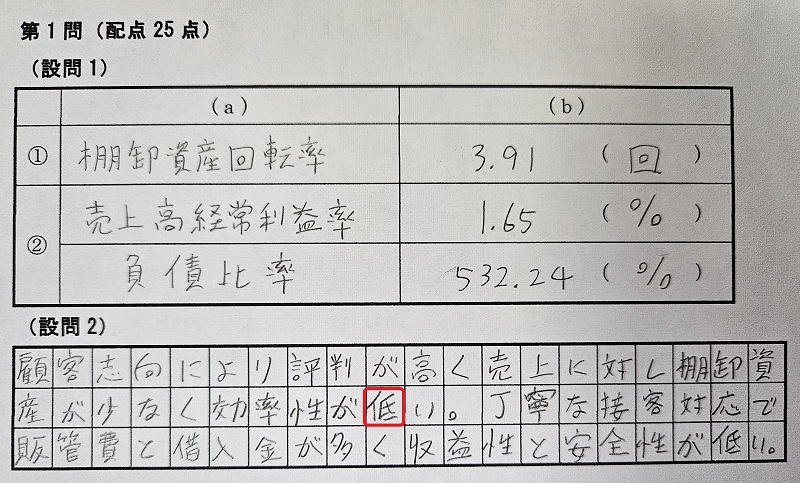 第1問（配点25点）
（設問1）
（a） （b）
① 棚卸資産回転率 3.91 （回）
② 売上高経常利益率 1.65 （%）
負債比率 532.24 （%）
（設問2）
顧客志向により評判が高く売上に対し棚卸資
産が少なく効率性が低い。丁寧な接客対応で
販管費と借入金が多く収益性と安全性が低い。